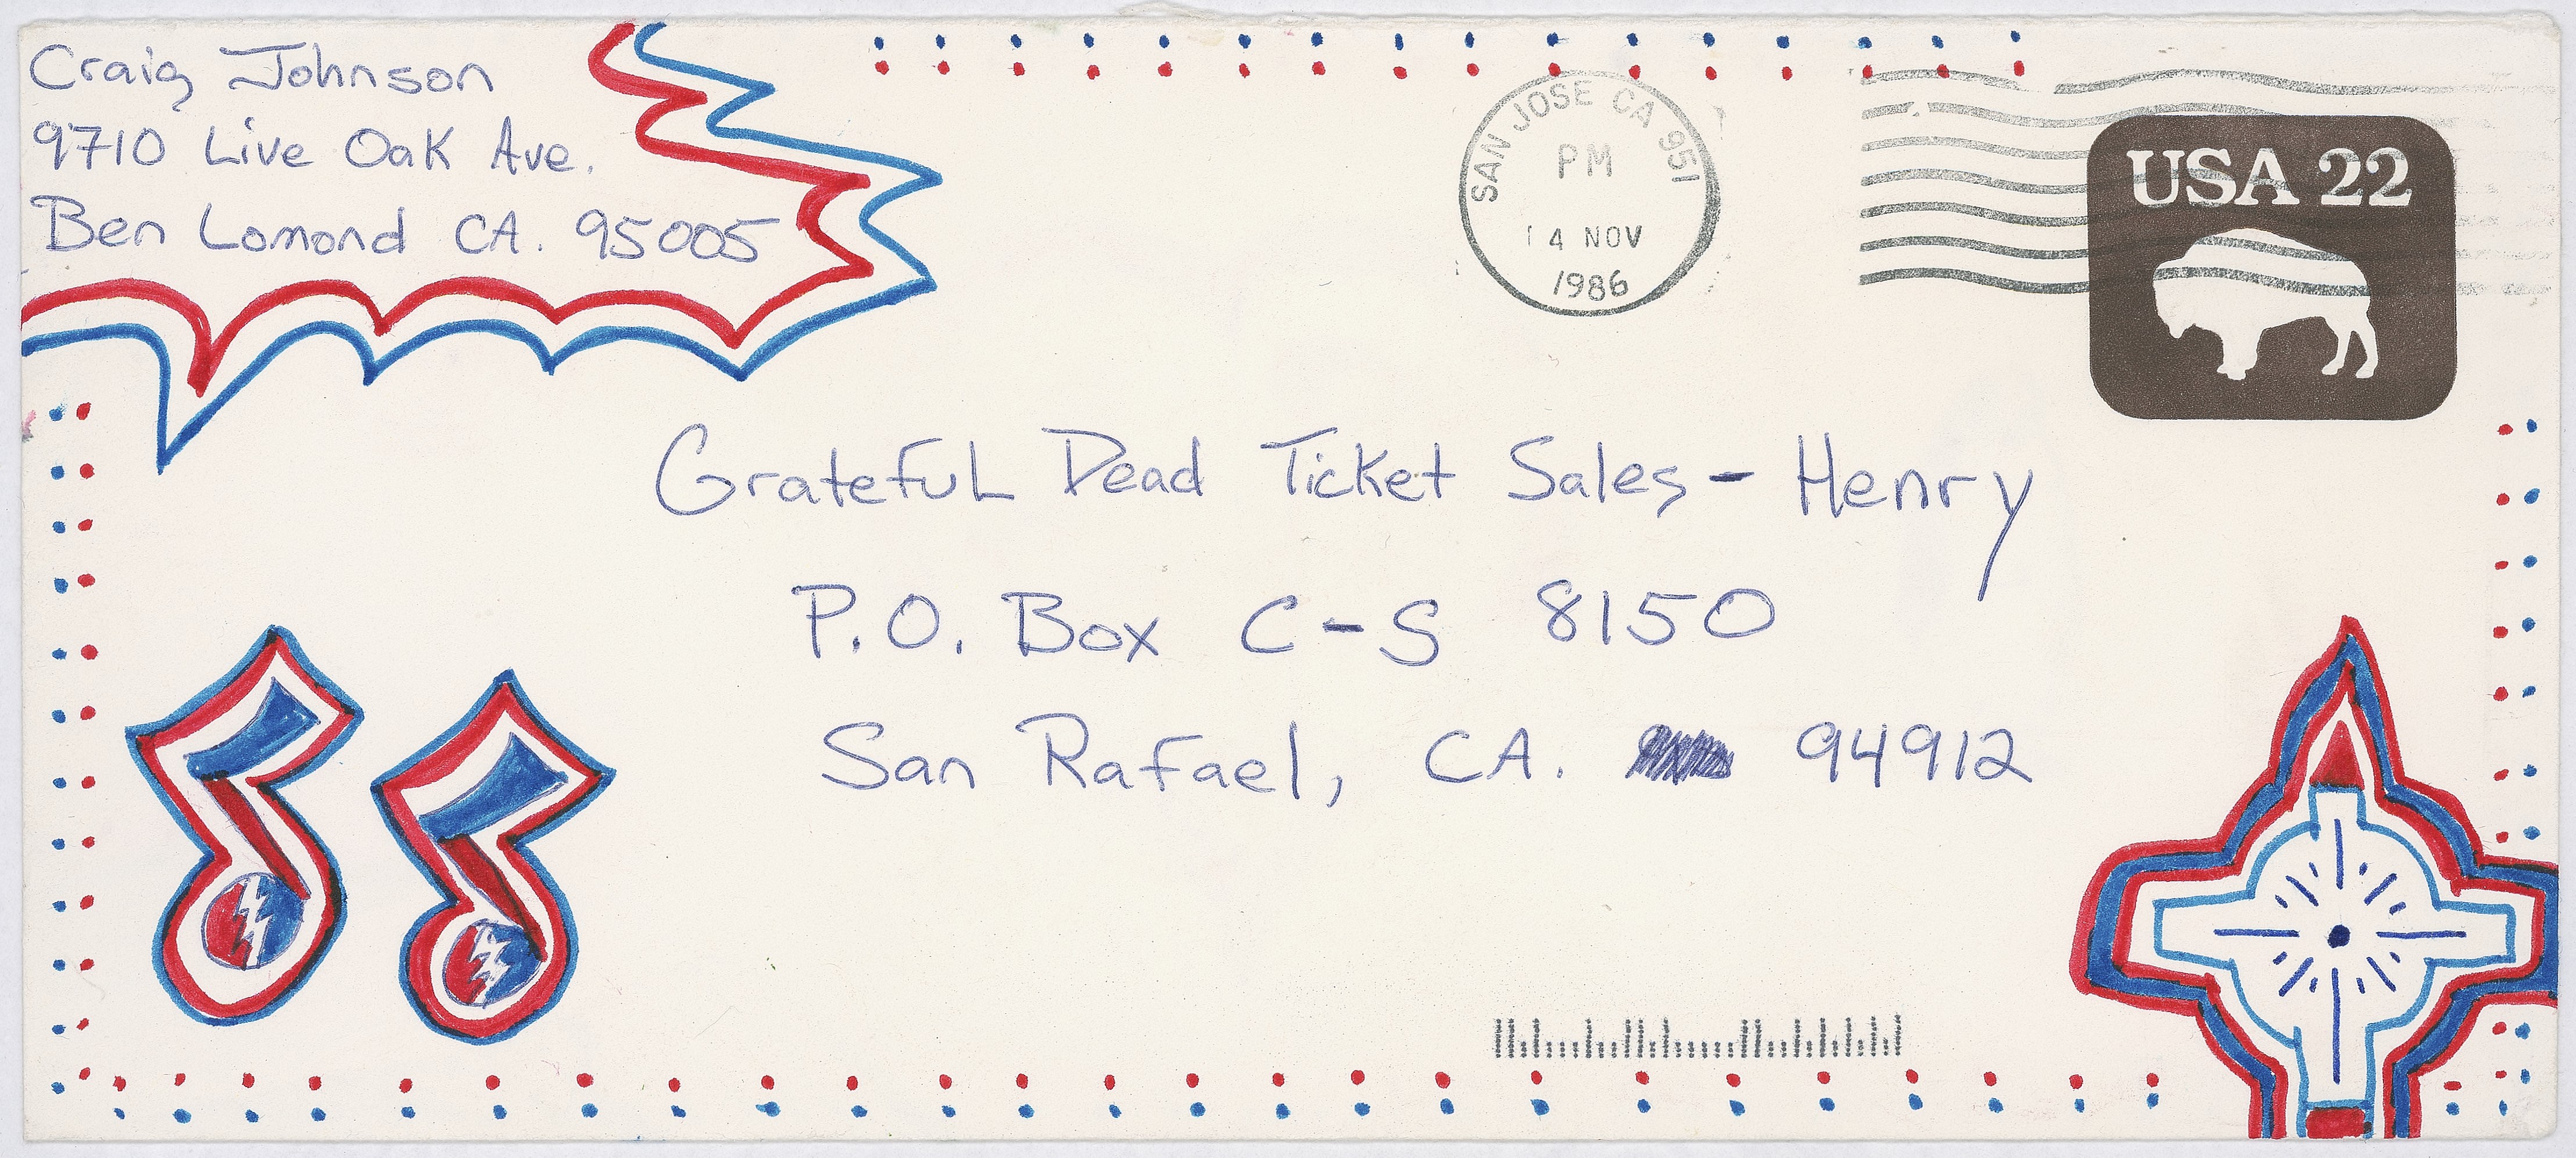 Craig Johnson
9710 Live Oak Ave.
Ben Lomond CA. 95005
SAN JOSE CA 951
PM
14 NOV
1986
USA 22
Grateful Dead Ticket Sales - Henry
P.O. Box C-S 8150
San Rafael, CA. 94912